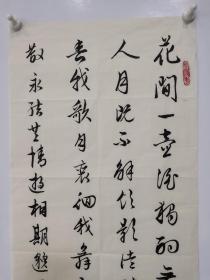 花間一壺酒獨酌無
人月既不解飲影徒
春我歌月徘徊我舞
散永結無情遊相期邈